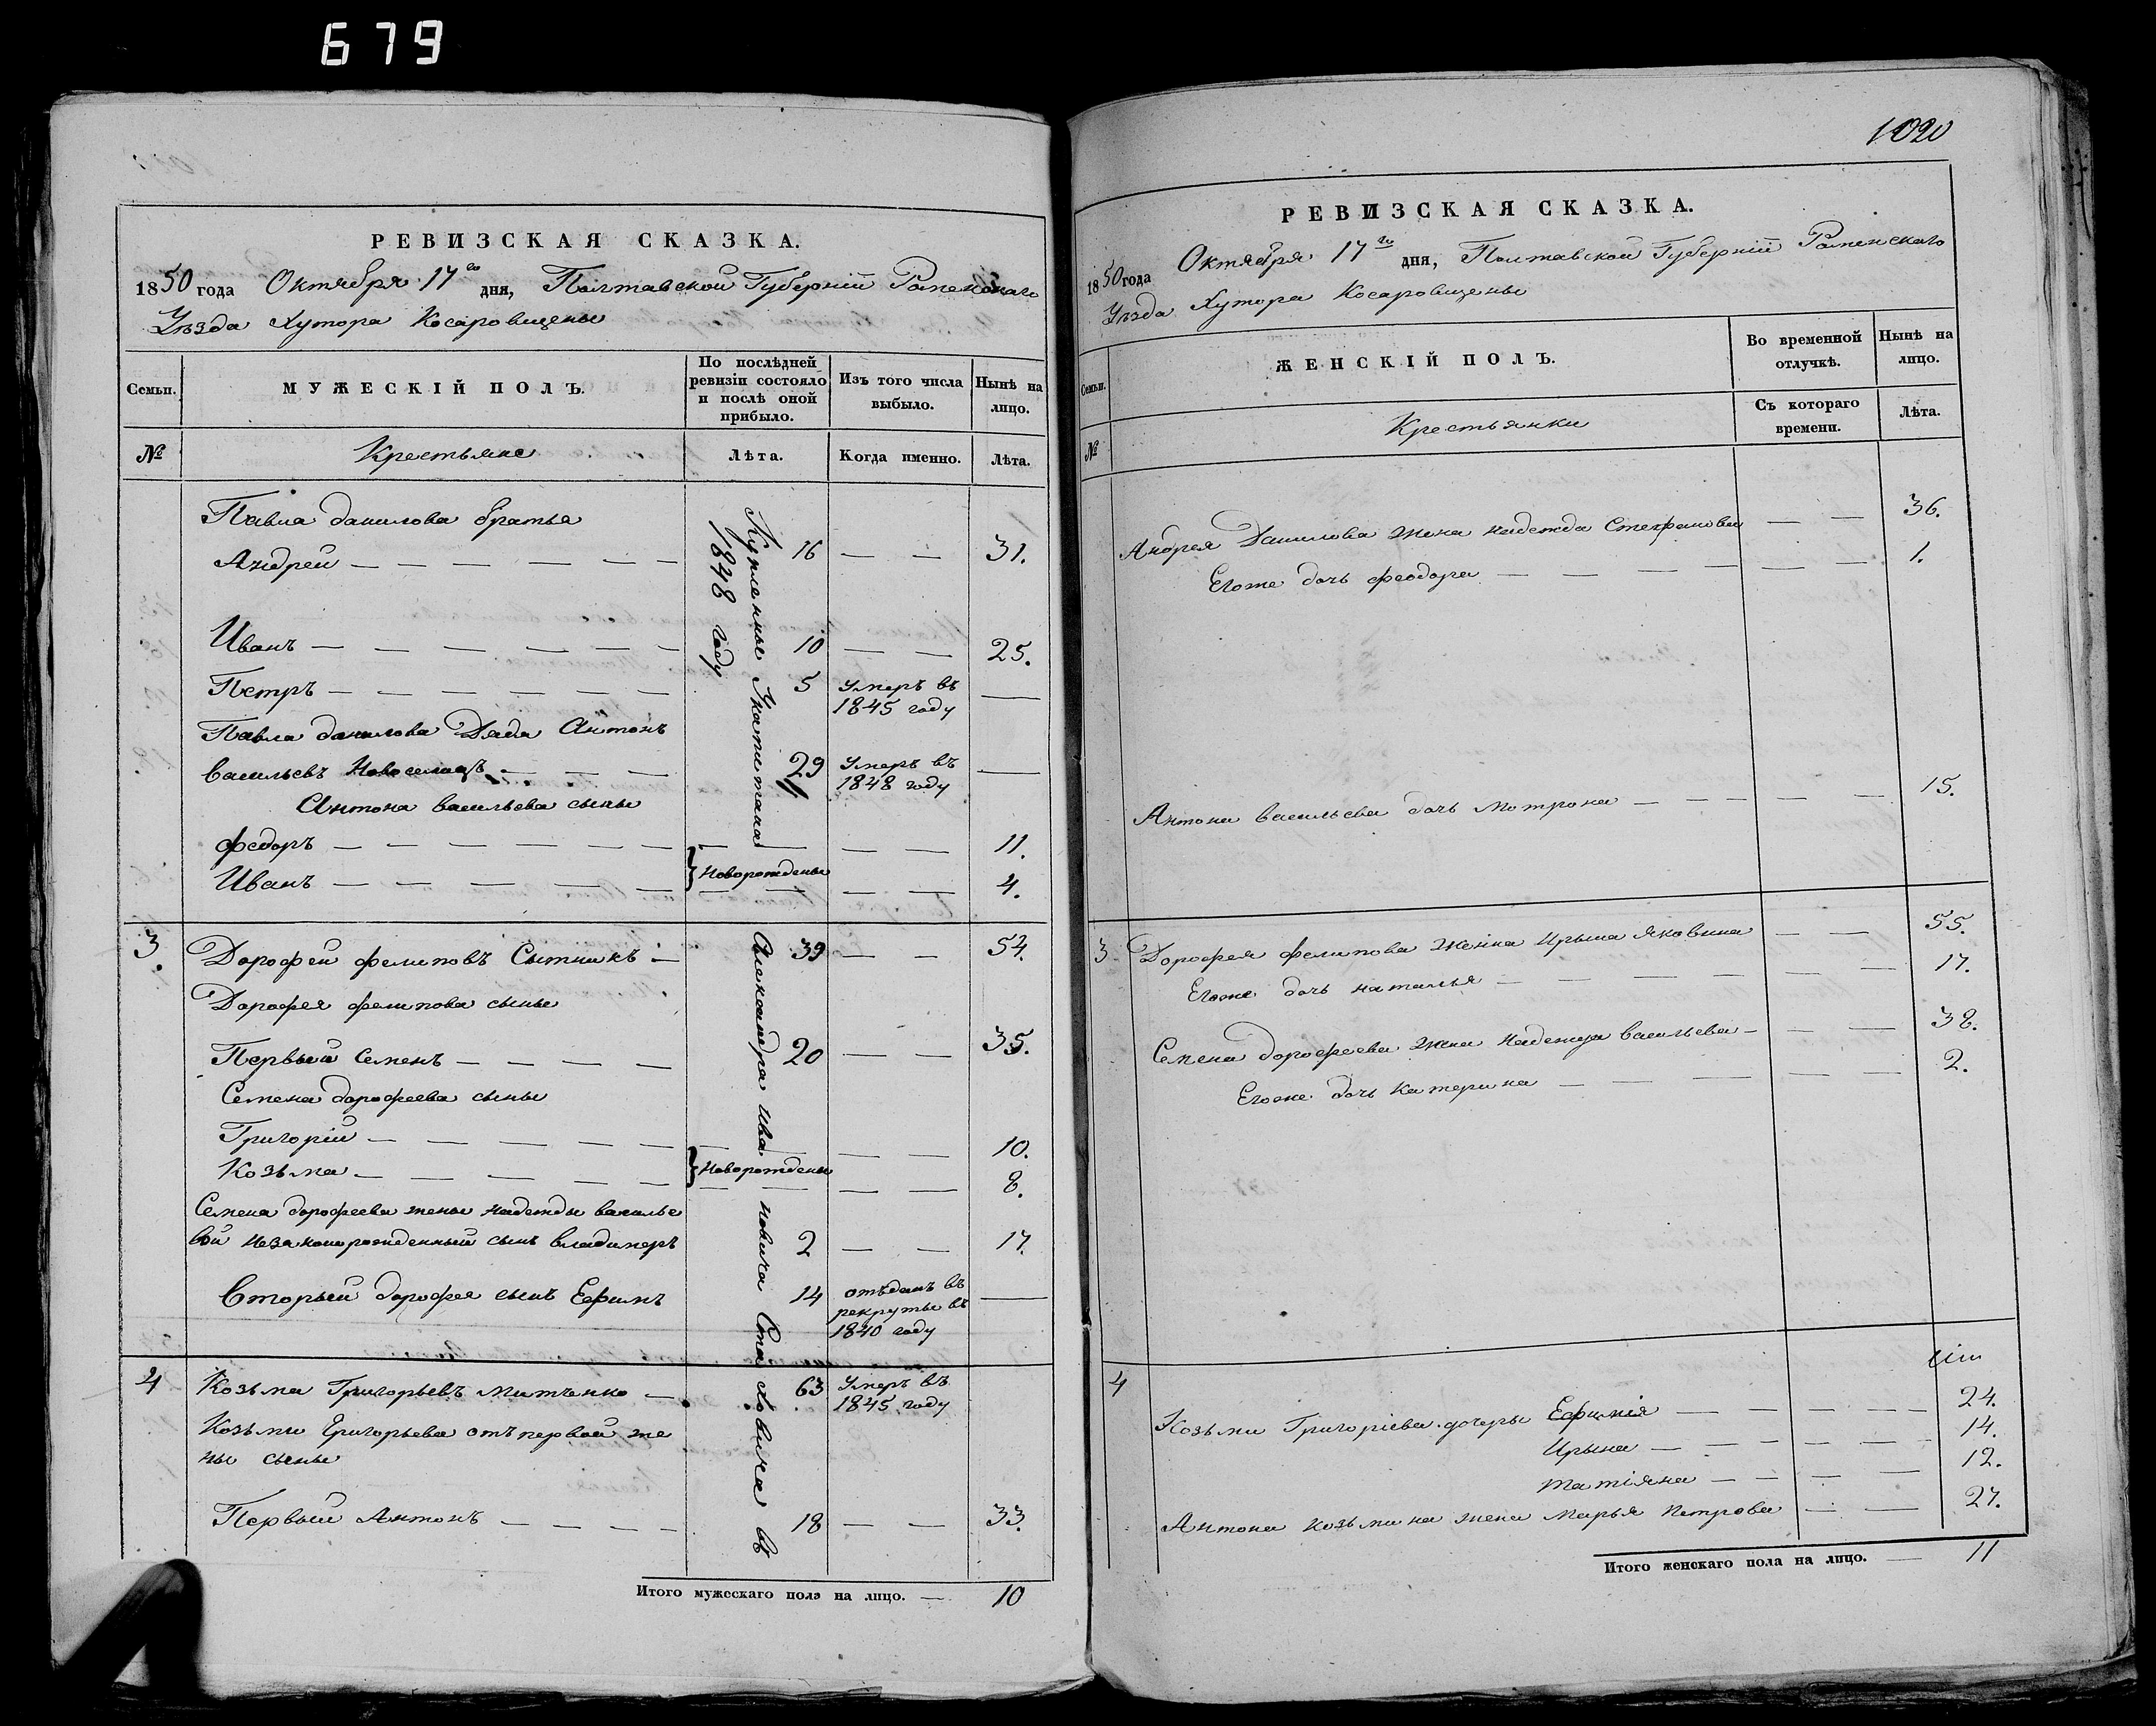 679
РЕВИЗСКАЯ СКАЗКА.
1850 года Октября 17го дня, Полтавской Губерніи Роменскаго
Уѣзда Хутора Косаровщены
Семьи.
МУЖЕСКІЙ ПОЛЪ.
По послѣдней ревизіи состояло и послѣ оной прибыло.
Изъ того числа выбыло.
Нынѣ на лицо.
№
Крестьяне
Лѣта.
Когда именно.
Лѣта.
Павла данилова братья
Андрей — — — — — — 16 — — 31.
Иванъ — — — — — — 10 — — 25.
Петръ — — — — — — 5 Умеръ въ 1845 году —
Павла данилова Дядя Антонъ
васильевъ Новоселецъ — — — 29 Умеръ въ 1848 году —
Антона васильева сыны
федоръ — — — — — — — — — — 11.
} Новорожденны
Иванъ — — — — — — — — — — 4.
3. Дорофей фелиповъ Сытникъ — 39 — — 54.
Дорофея фелипова сыны
Первый Семенъ — — — — 20 — — 35.
Семена дорофеева сыны
Григорій — — — — — — — — — — 10.
} Новорожденны
Козьма — — — — — — — — — — 8.
Семена дорофеева жены надежды василье
вой незаконорожденный сынъ владимеръ 2 — — 17.
Вторый дорофея сынъ Ефимъ 14 отъданъ въ рекруты въ 1840 году —
4 Козьма Григорьевъ митченко — 63 Умеръ въ 1845 году
Козьмы Григорьева отъ первой же
ны сыны
Первый Антонъ — — — — 18 — — 33.
Купленные Укапитана Александра Ивановича Стаховича въ
1848 году
Итого мужескаго пола на лицо. — 10
1020
РЕВИЗСКАЯ СКАЗКА.
1850 года Октября 17го дня, Полтавской Губерніи Роменскаго
Уѣзда Хутора Косаровщены
Семьи.
ЖЕНСКІЙ ПОЛЪ.
Во временной отлучкѣ.
Нынѣ на лицо.
№
Крестьянки
Съ котораго времени.
Лѣта.
Андрея Данилова жена надежда Стефанова — — 36.
Егоже дочь феодора — — — — — — 1.
Антона васильева дочь мотрона — — — — — 15.
3 Дорофея фелипова женка Ирына Яковина — — 55.
Егоже дочь наталья — — — — — — 17.
Семена дорофеева жена надежда васильева — — — 38.
Егоже дочь катерина — — — — — — 2.
4
Козьмы Григоріева дочеры Ефимія — — — — — 24.
Ирына — — — — — 14.
татіяна — — — — — 12.
Антона козьмина жена марья петрова — — 27.
Итого женскаго пола на лицо. — 11